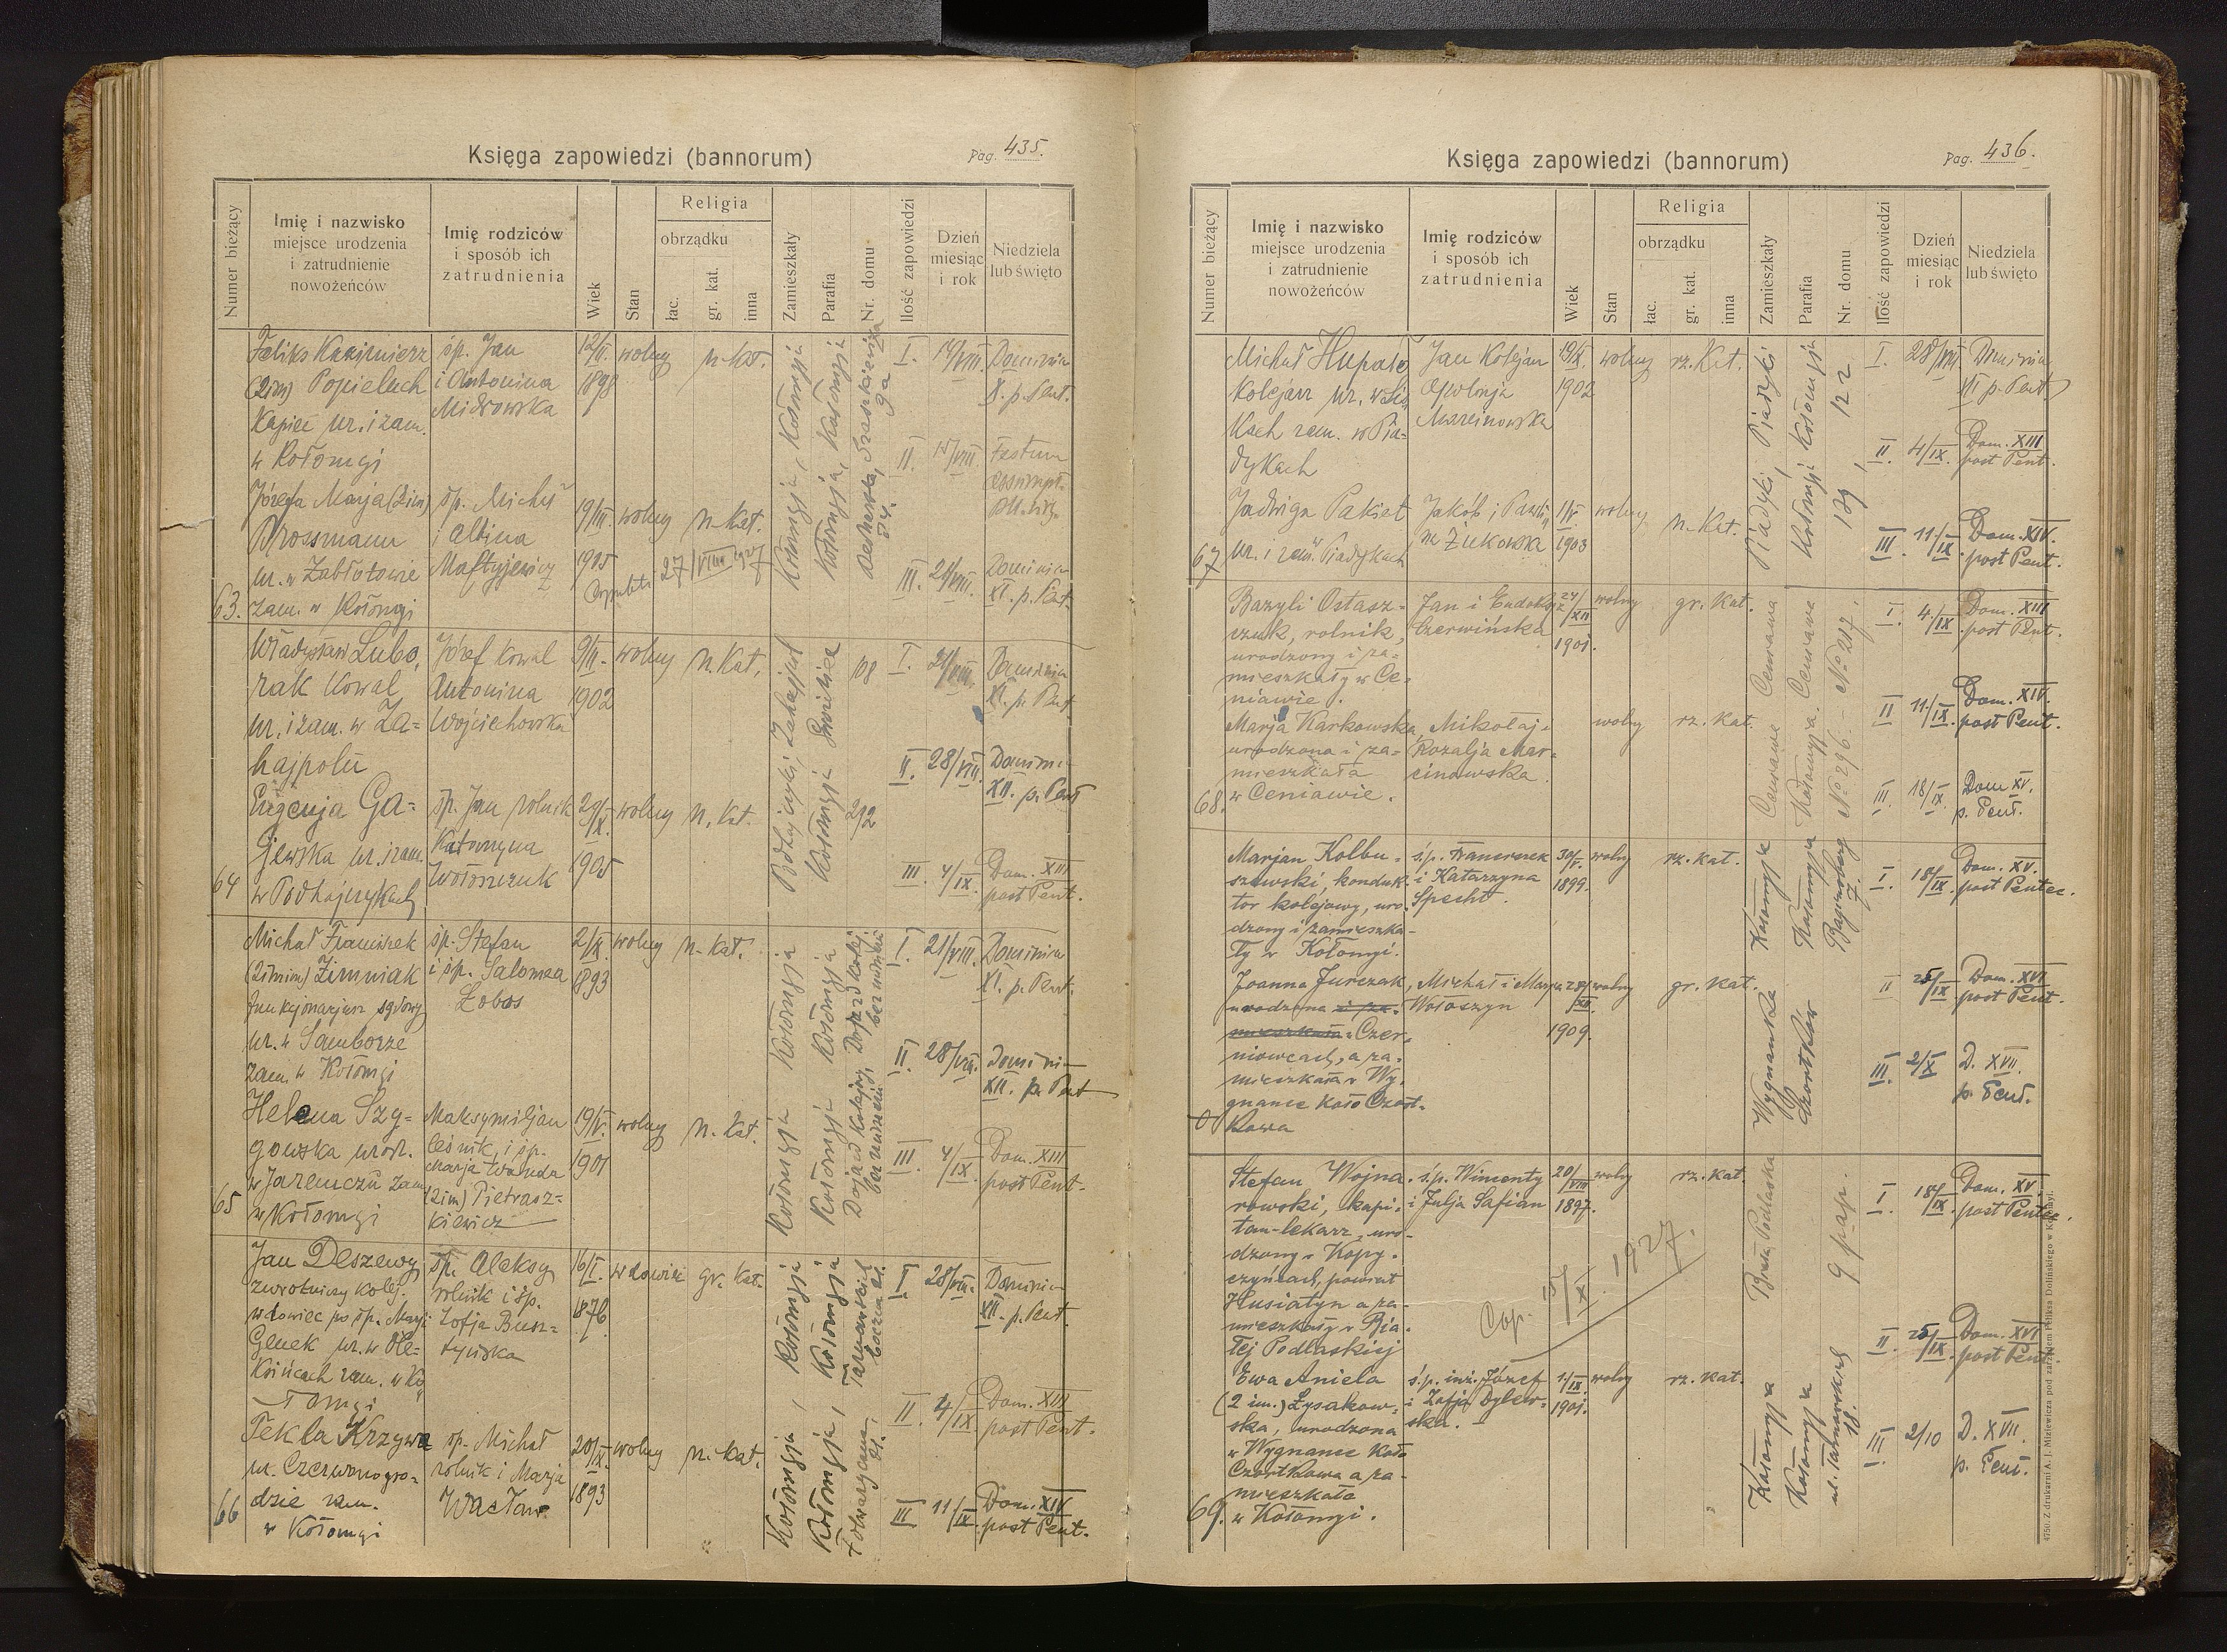 Księga zapowiedzi (bannorum)
Pag. 435.
Numer bieżący
Imię i nazwisko
miejsce urodzenia
i zatrudnienie
nowożeńców
Imię rodziców
i sposób ich
zatrudnienia
Wiek
Stan
Religia
obrządku
łac.
gr. kat.
inna
Zamieszkały
Parafia
Nr. domu
Ilość zapowiedzi
Dzień
miesiąc
i rok
Niedziela
lub święto
Feliks Kazimierz
(2im) Popieluch
ur. i zam.
w Kołomyi
śp. Jan
i Antonina
12/II.
1898
wolny
rz. Kat.
Kołomyja, Kołomyja
Kołomyja, Kołomyja
9a
84.
I. 14/VIII. Dominica
X. p. Pent.
II. 15/VIII. Festum
Assumpt.
III. 21/VIII. Dominica
XI. p. Pent.
Józefa Marja (2im)
Brossmann
ur. w Zabłotowie
63. zam. w Kołomyi
śp. Michał
i Albina
19/III.
1905
wolny
rz. Kat.
27/VIII 1927
Władysław Lubo-
rak kowal
ur. i zam. w Za-
hajpolu
Józef kowal
Antonina
Wojciechowska
9/II.
1902
wolny
rz. Kat.
Podhajczyki, Zahajpol
Kołomyja
108
292
I. 21/VIII. Dominica
XI. p. Pent.
II. 28/VIII. Domini-
XII. p. Pent
III. 4/IX. Dom. XIII
post Pent.
Eugenja Ga-
jewska ur. i zam.
64 w Podhajczykach
śp. Jan rolnik
Katarzyna
Wołoszczuk
29/X.
1905
wolny
rz. Kat.
Michał Franciszek
(2imim) Zimniak
funkcjonarjusz sądowy
ur. w Samborze
zam. w Kołomyi
śp. Stefan
i śp. Salomea
Łobos
2/IX.
1893
wolny
rz. Kat.
Kołomyja Kołomyja
Kołomyja Kołomyja
Dojazd Kolej.
bez numeru
I. 21/VIII. Dominica
XI. p. Pent.
II 28/VIII. Domini-
XII. p. Pent
III 4/IX. Dom. XIII
post Pent.
Helena Szy-
gowska urodz.
w Jaremczu zam.
65 w Kołomyi
Maksymiljan
leśnik, i śp.
Marja Wanda
(2im) Pietrasz-
kiewicz
19/V.
1901
wolny
rz. Kat.
Jan Deszewy
zwrotniczy kolej.
wdowiec po śp. Marji
ur. w Ole-
Kśińcach zam. w Ko-
łomyi
śp. Aleksy
rolnik i śp.
Zofja
16/I.
1876
wdowiec
gr. Kat.
Kołomyja, Kołomyja
Kołomyja, Kołomyja
I 28/VIII. Dominica
XII. p. Pent.
II. 4/IX Dom. XIII
post Pent.
III 11/IX. Dom. XIV
post Pent.
Tekla Krzywa
ur. Czerwonogro-
dzie zam.
66 w Kołomyi
śp. Michał
rolnik i Marja
Wacław
20/IX.
1893
wolny
rz. kat.
Księga zapowiedzi (bannorum)
Pag. 436.
Numer bieżący
Imię i nazwisko
miejsce urodzenia
i zatrudnienie
nowożeńców
Imię rodziców
i sposób ich
zatrudnienia
Wiek
Stan
Religia
obrządku
łac.
gr. kat.
inna
Zamieszkały
Parafia
Nr. domu
Ilość zapowiedzi
Dzień
miesiąc
i rok
Niedziela
lub święto
Michał
Kolejarz ur. w
zam. w Pia-
dykach
Jan Kolejarz
Apolonja
Marcinowska
19/IX.
1902
wolny
rz. Kat.
Piadyki, Piadyki
Kołomyja Kołomyja
139, 122
I. 28/VIII. Dominica
XII p. Pent.
II 4/IX. Dom. XIII
post Pent.
III 11./IX. Dom. XIV.
post Pent.
Jadwiga Pakiet
67 ur. i zam. w Piadykach
Jakób i Pauli-
na Żukowska
1/V
1903
wolny
rz. Kat.
Bazyli Ostasz-
czuk, rolnik,
urodzony i za-
mieszkały w Ce-
niawie.
Jan i Eudokja
Czerwińska
24/XII
1901.
wolny
gr. Kat.
Ceniawa Ceniawa
Kołomyja. Ceniawa
№ 296. – № 217.
I. 4/IX. Dom. XIII
post Pent.
II 11./IX. Dom. XIV.
post Pent.
III 18/IX. Dom XV.
p. Pent.
Marja Karkowska,
urodzona i za-
mieszkała
68. w Ceniawie.
Mikołaj i
Rozalja Mar-
cinowska.
wolny
rz. Kat.
Marjan Kolbu-
szewski, konduk-
tor kolejowy, uro-
dzony i zamieszka-
ły w Kołomyi.
ś.p. Franciszek
i Katarzyna
Specht.
30/V.
1899.
wolny
rz. kat.
Wygnanka Kołomyja
Czortków Kołomyja
Baginsberg
7.
I. 18/IX. Dom. XV.
post Pentec.
II 25/IX Dom. XVI
post Pent.
III. 2/X D. XVII.
p. Pent.
Joanna Jurczak,
urodzona i za-
mieszkała w Czer-
niowcach, a za-
mieszkała w Wy-
gnance koło Czort-
kowa
Michał i Marja
Wołoszyn
28/XII.
1909.
wolny
gr. kat.
Stefan Wojna-
rowski, kapi-
tan-lekarz, uro-
dzony w Kopy-
czyńcach, powiat
Husiatyn a za-
mieszkały w Bia-
łej Podlaskiej
ś.p. Wincenty
i Julja Safian
20/VIII
1897.
wolny
rz. kat.
Cop. 15/X. 1927.
Kołomyja Biała Podlaska
Kołomyja
ul. Tarnowskich
18.
9 p.a.p.
I 18/IX. Dom. XV.
post Pentec.
II 25/IX. Dom. XVI
post Pent.
III 2/10 D. XVII.
p. Pent.
Ewa Aniela
(2 im.) Łysakow-
ska, urodzona
w Wygnance koło
Czortkowa a za-
mieszkała
69. w Kołomyi.
ś.p. inż. Józef
i Zofja Dylew-
ska.
1/IX.
1901.
wolny
rz. kat.
4750. Z drukarni A. J. Miziewicza pod zarządem Feliksa Dolińskiego w Kołomyi.